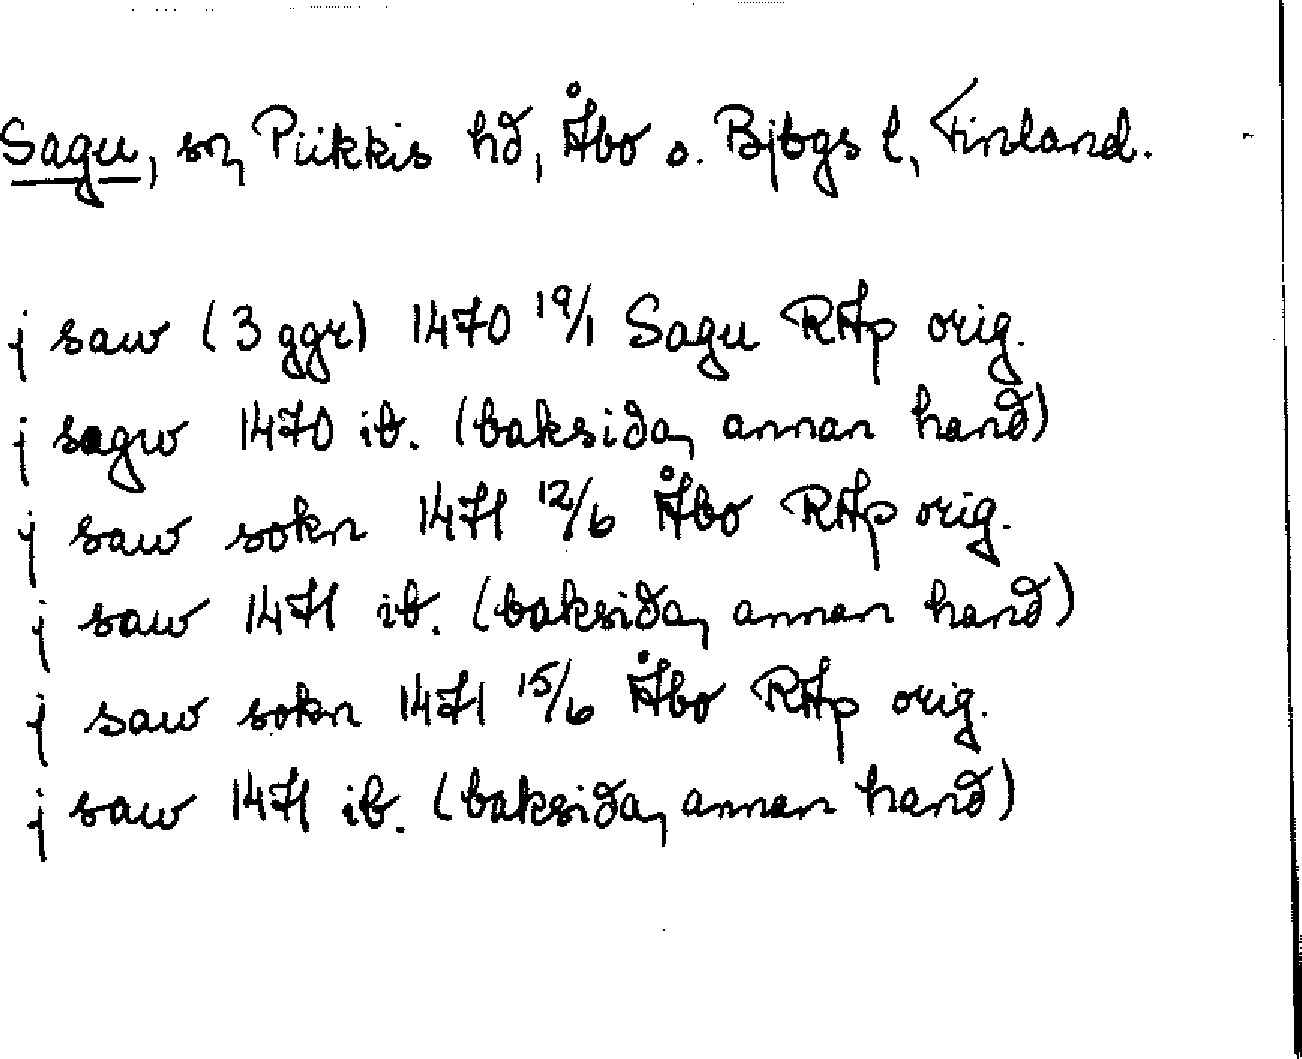 Sagu, sn, Piikkis hd, Åbo o. Bjbgs l, Finland.
j saw (3 ggr) 1470 19/1 Sagu RAp orig.
j sagw 1470 ib. (baksida, annan hand)
j saw sokn 1471 12/6 Åbo RAp orig.
j saw 1471 ib. (baksida, annan hand)
j saw sokn 1471 15/6 Åbo RAp orig.
j saw 1471 ib. (baksida, annan hand)